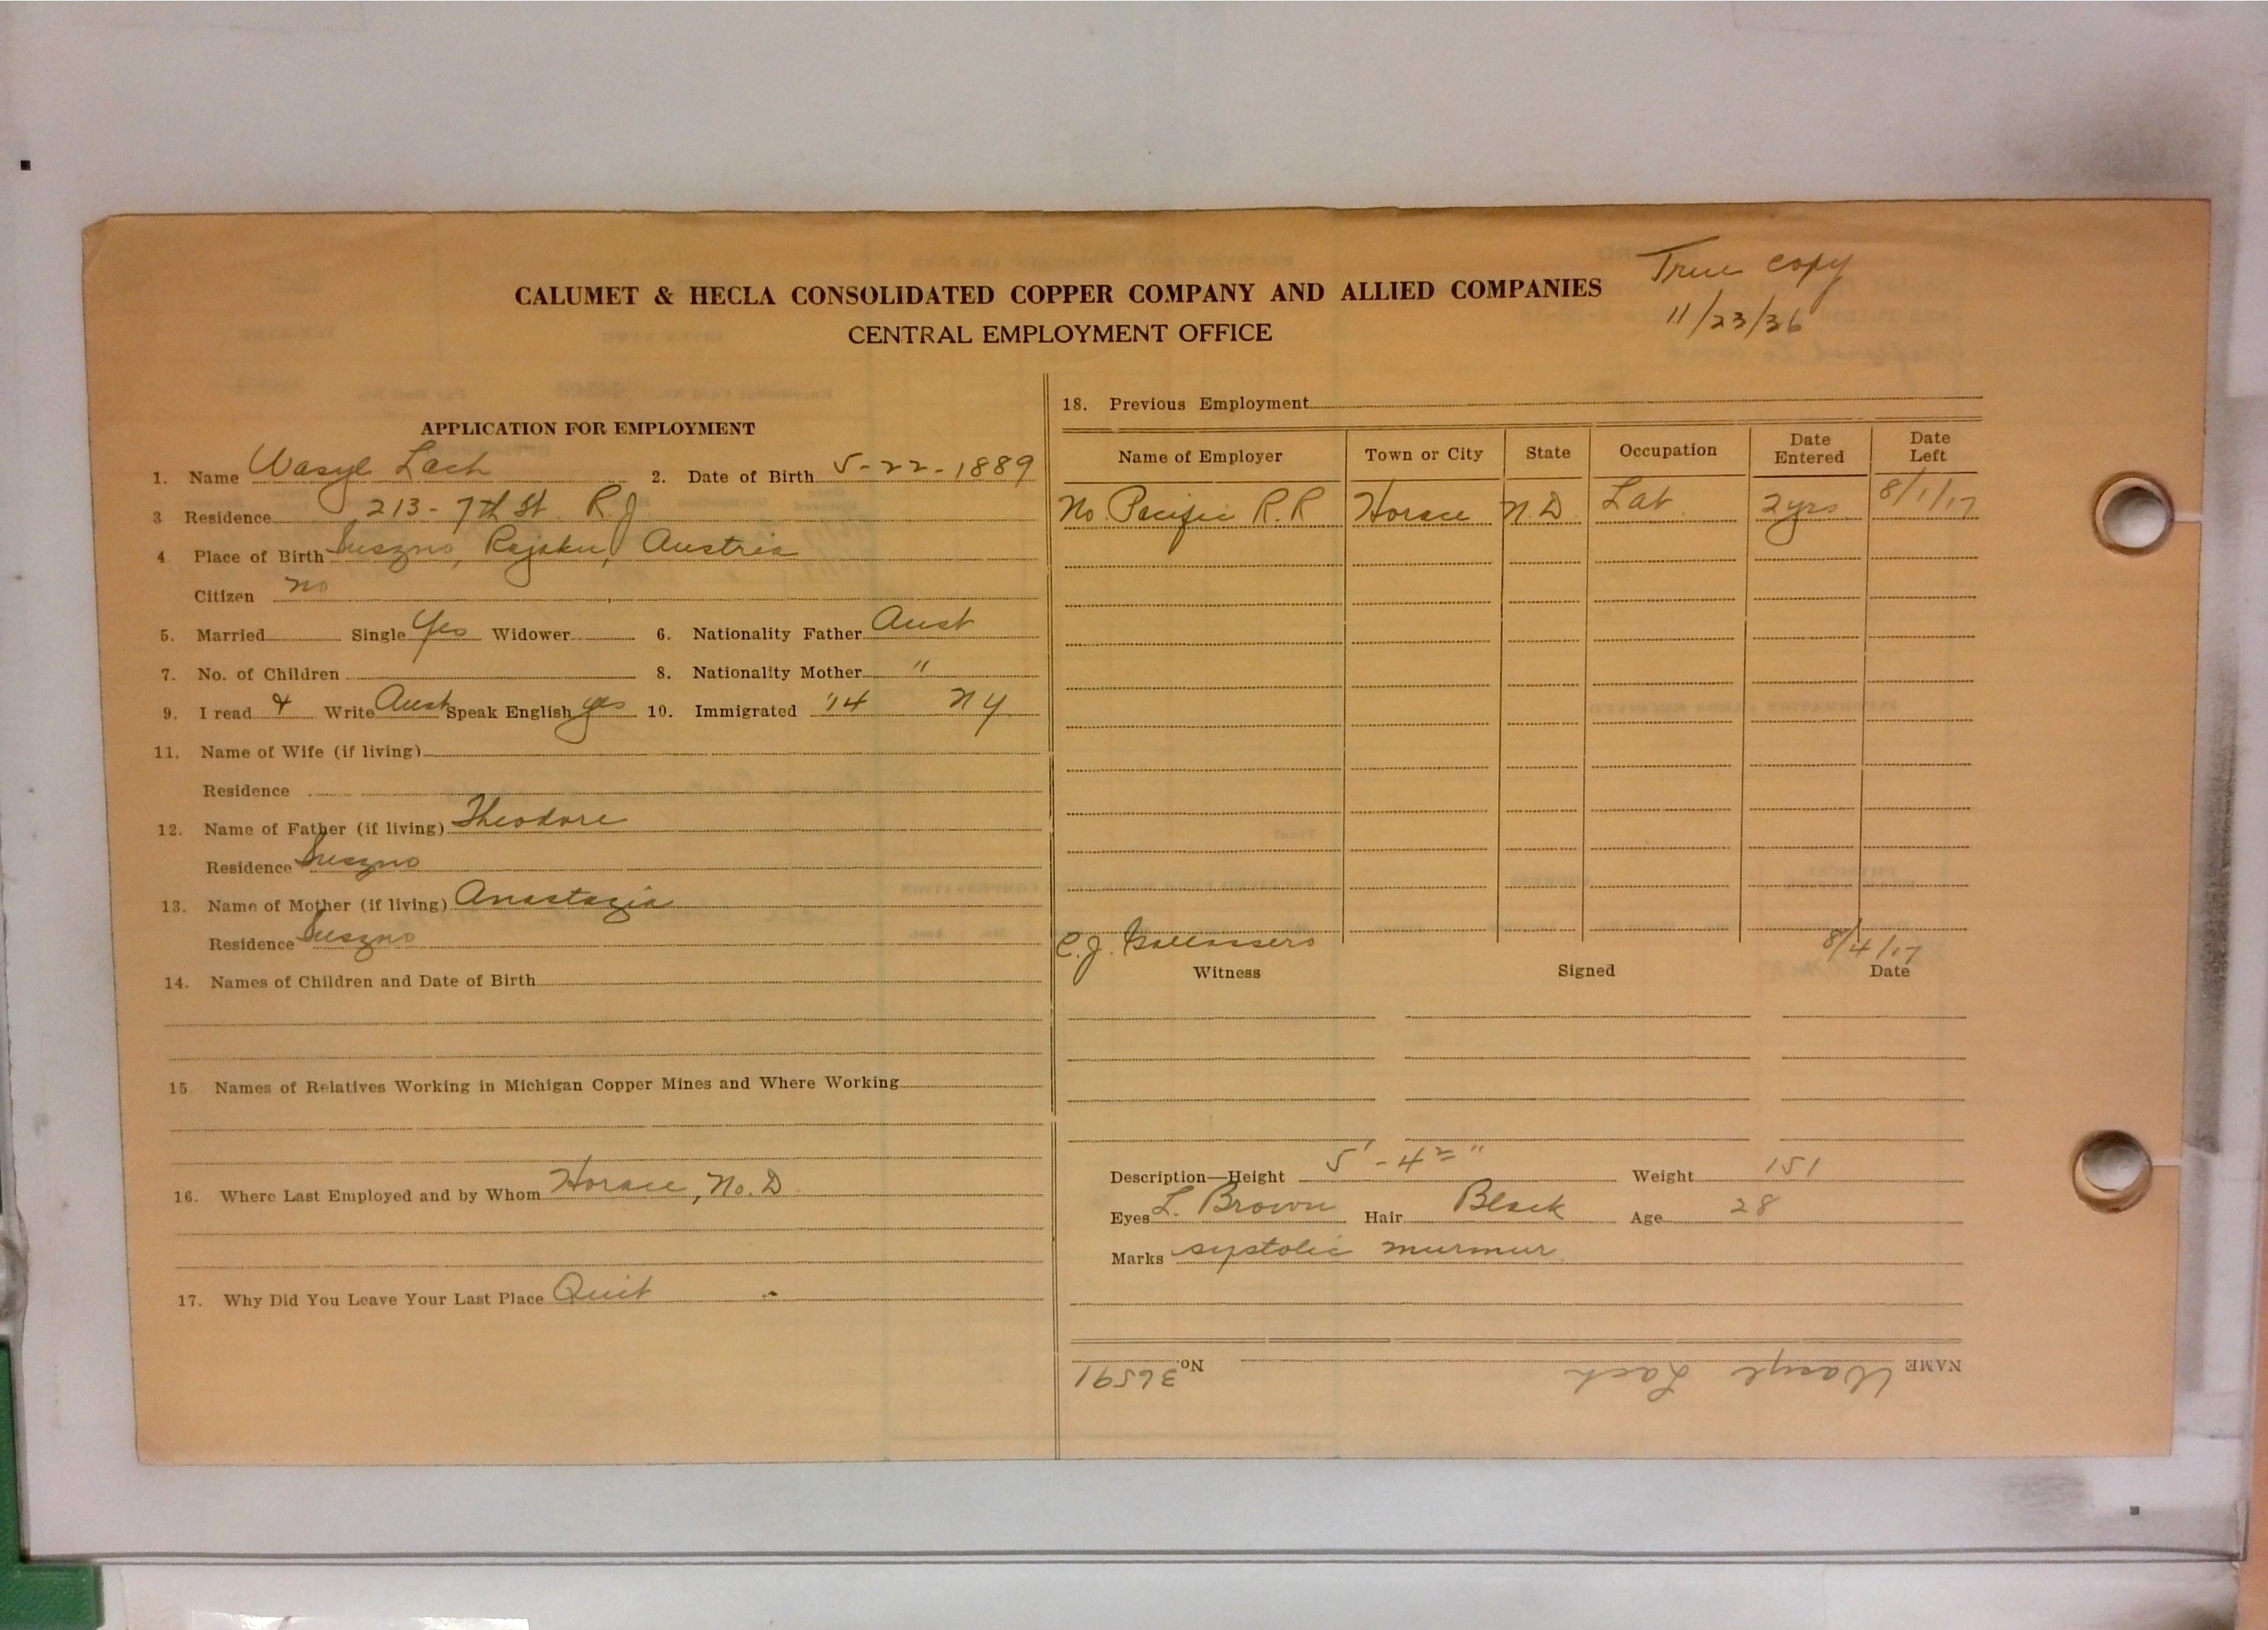 True copy
11/23/36
CALUMET & HECLA CONSOLIDATED COPPER COMPANY AND ALLIED COMPANIES
CENTRAL EMPLOYMENT OFFICE
APPLICATION FOR EMPLOYMENT
1. Name Wasyl Lach 2. Date of Birth 5-22-1889
3 Residence 213 - 7th St R J
4 Place of Birth Austria
Citizen no
5. Married Single Yes Widower 6. Nationality Father Aust
7. No. of Children 8. Nationality Mother "
9. I read & Write Aust Speak English yes 10. Immigrated '14 NY
11. Name of Wife (if living)
Residence
12. Name of Father (if living) Theodore
Residence
13. Name of Mother (if living) Anastazia
Residence
14. Names of Children and Date of Birth
15 Names of Relatives Working in Michigan Copper Mines and Where Working
16. Where Last Employed and by Whom Horace, No. D
17. Why Did You Leave Your Last Place Quit
18. Previous Employment
Name of Employer Town or City State Occupation Date Entered Date Left
No Pacific R.R Horace N.D. Lab. 2yrs 8/1/17
C.J. 8/4/17
Witness Signed Date
Description—Height 5' - 4 2/2 " Weight 151
Eyes L. Brown Hair Black Age 28
Marks systolic murmur
NAME Wasyl Lach No. 36591